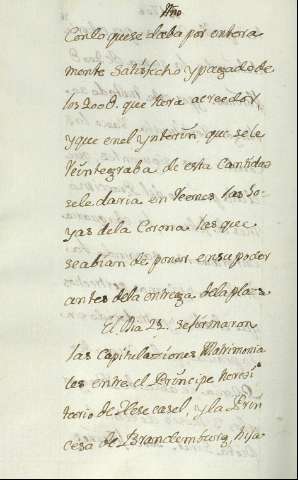 Año
Con lo quese daba por entera
mente satisfecho y pagado de
los 200 @. que hera acreedor,
y que en el ynterin que se le
Reintegraba de esta Cantidad
se le daria en Reenes las Jo-
yas de la Corona las que
se abian de poner en su poder
antes de la entrega de la plaza.
El Dia 25. se formaron
las Capitulaciones Matrimonia
les entre el Principe heredi
tario de Hese casel, y la Prin
cesa de Brandemburg, hija